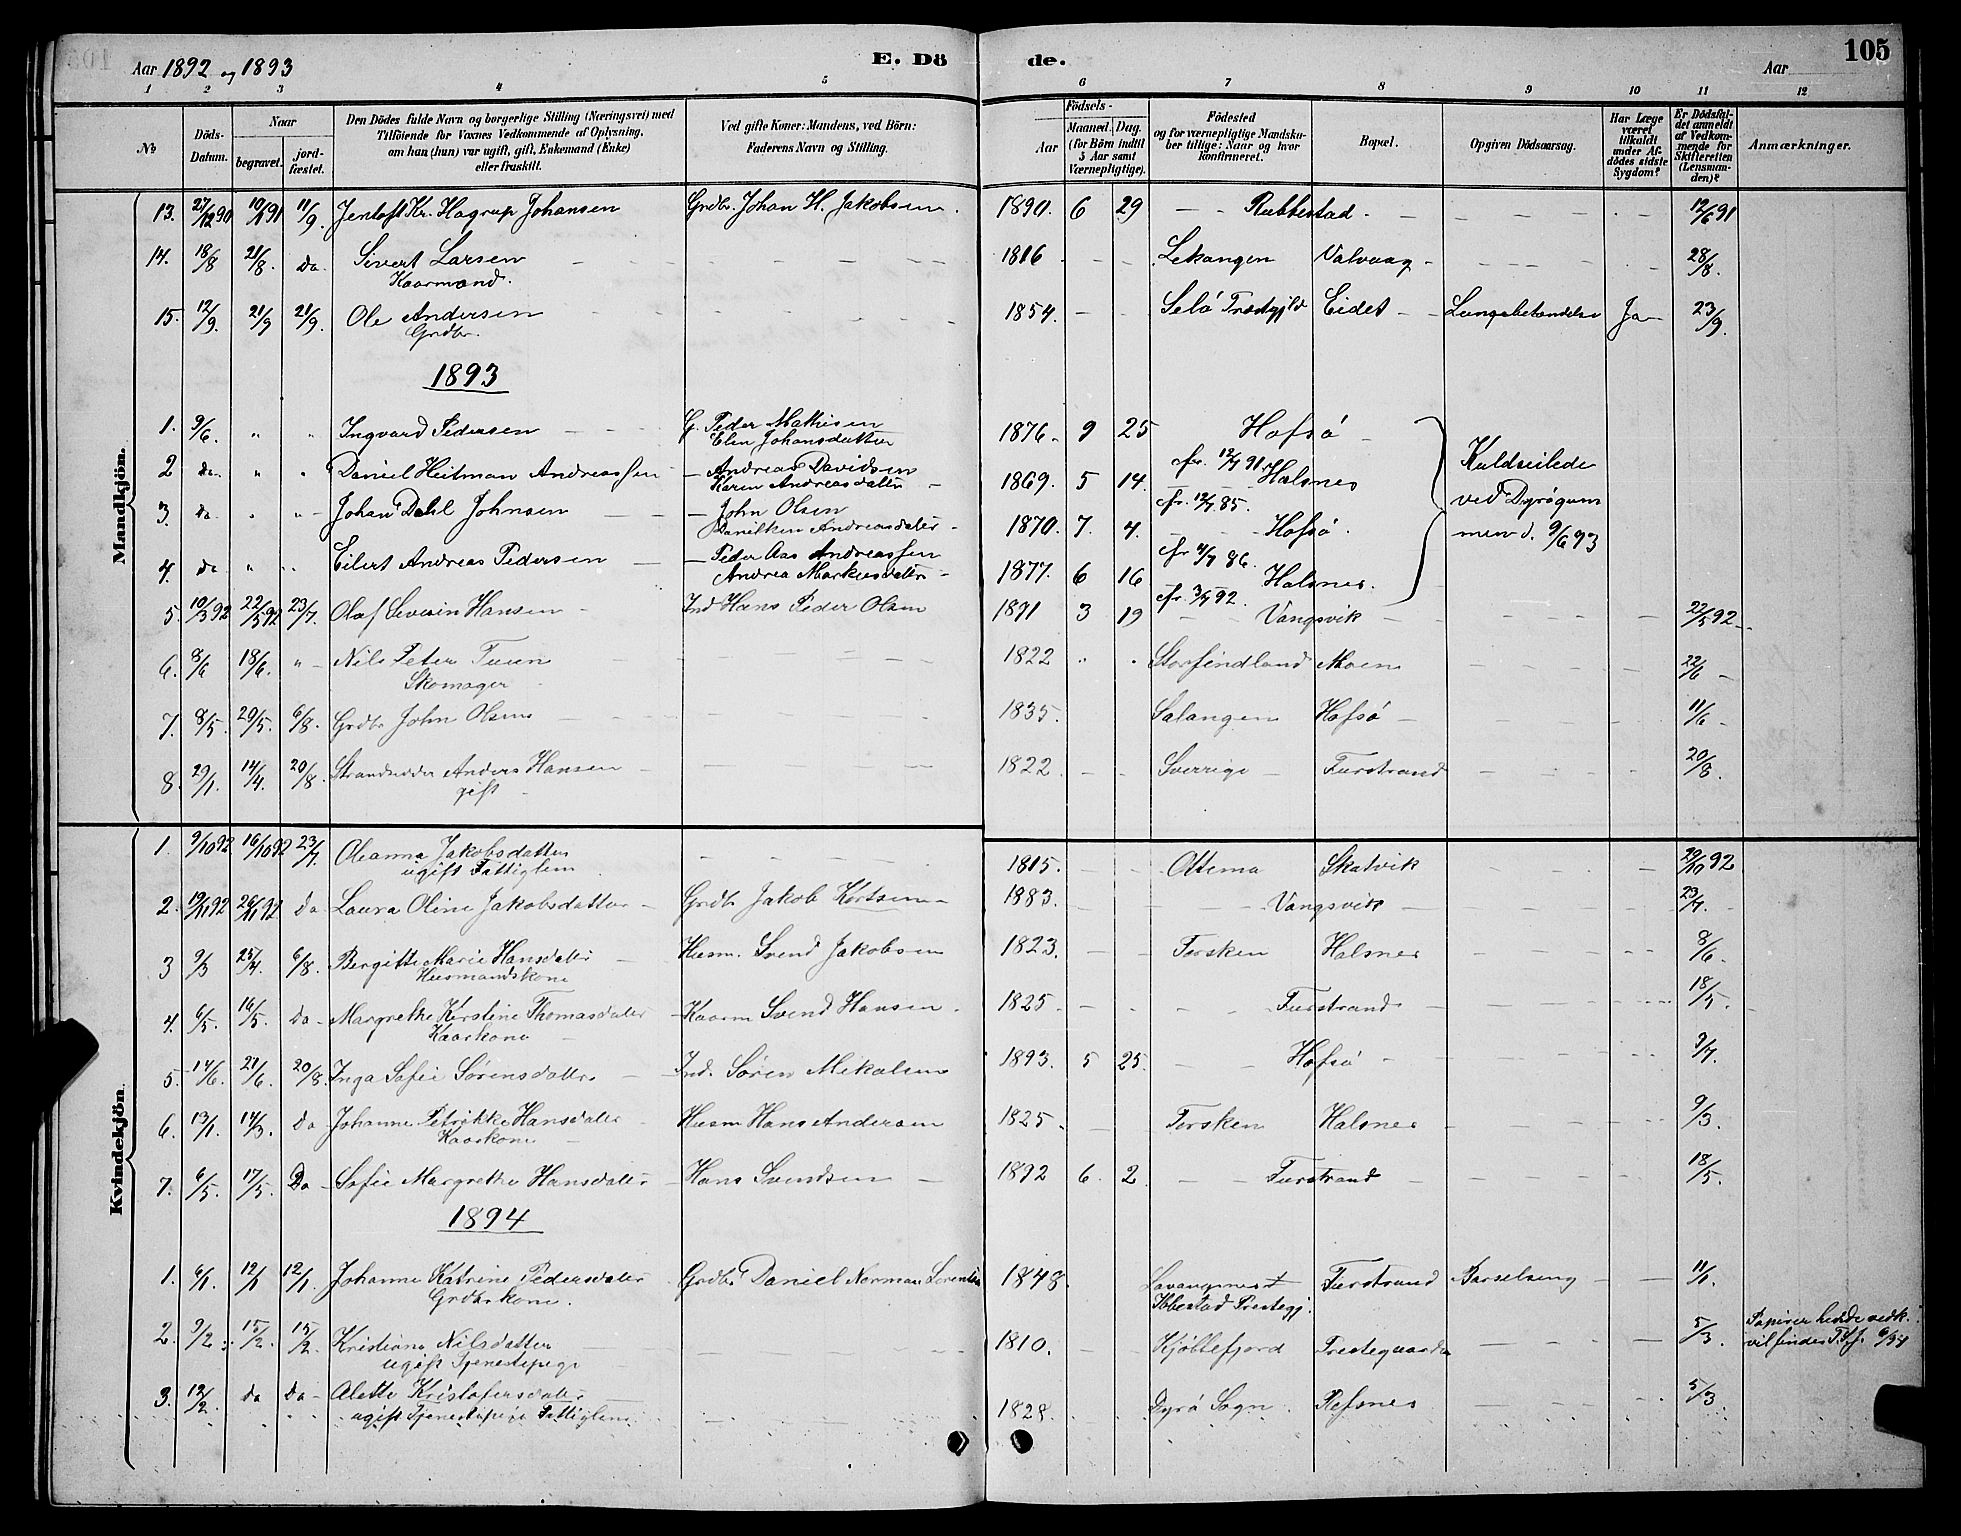 Aar 1892 og 1893
E. Dö
de.
Aar
105
1 2 3 4 5 6 7 8 9 10 11 12
No
Döds-Datum.
Naar
begravet.
jord-fæstet.
Den Dödes fulde Navn og borgerlige Stilling (Næringsvei) med Tilföiende for Voxnes Vedkommende af Oplysning, om han (hun) var ugift, gift, Enkemand (Enke) eller fraskilt.
Ved gifte Koner: Mandens, ved Börn: Faderens Navn og Stilling.
Födsels-
Aar
Maaned. Dag.
(for Börn indtil 5 Aar samt Værnepligtige).
Födested og for værnepligtige Mandskaber tillige: Naar og hvor konfirmeret.
Bopæl.
Opgiven Dödsaarsag.
Har Læge været tilkaldt under Afdödes sidste Sygdom?
Er Dödsfaldet anmeldt af Vedkommende for Skifteretten (Lensmanden)?
Anmærkninger.
Mandkjön.
13. 27/12 90 10/1 91 11/9. Jentoft Kr. Hagrup Johansen Grdbr. Johan H. Jakobsen. 1890. 6 29 Rubbestad 12/6 91
14. 18/8 21/8. Do Sivert Larsen 1816 Lekangen Valvaag 28/8.
Kaarmand.
15. 12/9. 21/9 21/9. Ole Andersen 1854. Selö Prestgjld Eidet Lungebetændelse Ja 23/9.
Grdbr.
1893
1. 9/6. " " Ingvard Pedersen G. Peder Mathisen 1876. 9 25 Hofsö
Elen Johansdatter
cfr. 12/7 91.
2 do " " Daniel Heitman Andreassen Andreas Davidsen 1869. 5 14. Halsnes
Karen Andreasdatter
cfr. 12/7 85.
3. Do " " Johan Dahl Johnsen John Olsen 1870. 7. 4. Hofsö.
Danilken Andreasdatter
cfr 4/7 86.
4. do " " Eilert Andreas Pedersen Peder Aas Andreassen 1877. 6 16 Halsnes.
Andrea Markusdatter
cfr. 3/7 92.
Kuldseilede
ved Dyrögum
men d. 9/6 93
5. 10/3 92 22/5 92 23/7. Olaf Severin Hansen Ind Hans Peder Olsen 1891 3 19 Vangsvik 22/5 92
6. 8/6 18/6. " Nils Peter Tuun 1822 " " Storfindland Moen 22/6
Skomager
7. 8/5. 20/5. 6/8. Grdbr John Olsen 1835. Salangen Hofsö 11/6
8. 29/1. 14/4. 20/8. Strandsidder Anders Hansen 1822. Sverrige Furstrand 20/8.
gift
Kvindekjön.
1. 9/10 92 16/10 92 23/7. Oleanna Jakobsdatter 1815. Ottema Skatvik 29/10 92
ugift Fattiglem
2. 19/11 92 26/11 92 Do Laura Oline Jakobsdatter Grdbr Jakob Kortsen 1883. Vangsvik 23/7.
3 9/3 25/4. 6/8. Bergitte Marie Hansdatter Husm. Svend Jakobsen 1823. Torsken Halsnes 8/6.
Husmandskone
4. 6/5. 16/5. Do Margrethe Kirstine Thomasdatter Kaarm Svend Hansen 1825. Furstrand 18/5.
Kaarkone
5. 14/6. 21/6. 20/8. Inga Sofie Sörensdatter Ind. Sören Mikalsen 1893. 5 25. Hofsö 9/7.
6. 13/1. 14/3. Do Johanne Petrikke Hansdatter Husm Hans Andersen 1825. Torsken Halsnes 9/3.
Kaarkone
7. 6/5. 17/5. Do Sofie Margrethe Hansdatter Hans Svendsen 1892 6. 2. Furstrand 18/5.
1894
1. 6/1. 12/1 12/1 Johanne Katrine Pedersdatter Grdbr Daniel Norman Lorentsen 1848. Lavangsnest Furstrand Barselseng 11/1.
Grdbrkone. Ibbestad Prestegj.
2. 9/2. 15/2. 15/2. Kristiane Nilsdatter 1810. Kjöllefjord Prestegaarden 5/3. Papirer hende vedk.
ugift Tjenestepige vil findes
3. 12/2. do Do Alette Kristofersdatter 1828. Dyrö Sogn. Refsnes 5/3.
ugift Tjenestepige Fattiglem